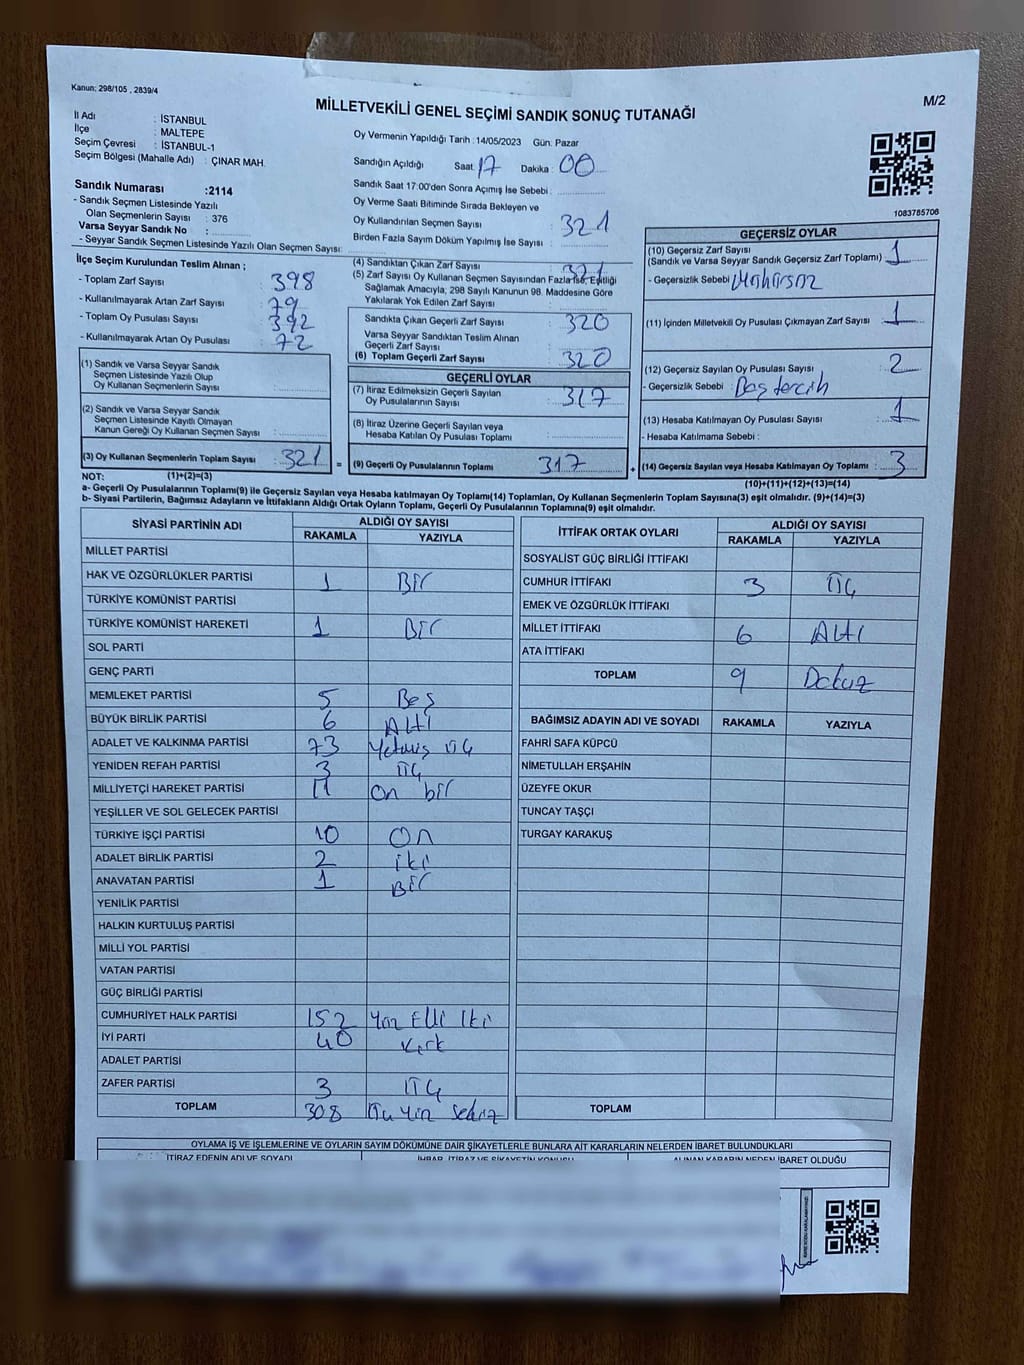 Kanun: 298/105 , 2839/4
M/2
MİLLETVEKİLİ GENEL SEÇİMİ SANDIK SONUÇ TUTANAĞI
İl Adı : İSTANBUL
İlçe : MALTEPE
Seçim Çevresi : İSTANBUL-1
Seçim Bölgesi (Mahalle Adı) : ÇINAR MAH.
Sandık Numarası :2114
- Sandık Seçmen Listesinde Yazılı
Olan Seçmenlerin Sayısı : 376
Varsa Seyyar Sandık No :
- Seyyar Sandık Seçmen Listesinde Yazılı Olan Seçmen Sayısı:
Oy Vermenin Yapıldığı Tarih : 14/05/2023 Gün: Pazar
Sandığın Açıldığı Saat: 17 Dakika : 00
Sandık Saat 17:00'den Sonra Açımış İse Sebebi :
Oy Verme Saati Bitiminde Sırada Bekleyen ve
Oy Kullandırılan Seçmen Sayısı : 321
Birden Fazla Sayım Döküm Yapılmış İse Sayısı :
1083785706
İlçe Seçim Kurulundan Teslim Alınan ;
- Toplam Zarf Sayısı : 398
- Kullanılmayarak Artan Zarf Sayısı : 79
- Toplam Oy Pusulası Sayısı : 392
- Kullanılmayarak Artan Oy Pusulası : 72
(1) Sandık ve Varsa Seyyar Sandık
Seçmen Listesinde Yazılı Olup
Oy Kullanan Seçmenlerin Sayısı :
(2) Sandık ve Varsa Seyyar Sandık
Seçmen Listesinde Kayıtlı Olmayan
Kanun Gereği Oy Kullanan Seçmen Sayısı :
(3) Oy Kullanan Seçmenlerin Toplam Sayısı : 321 =
(1)+(2)=(3)
(4) Sandıktan Çıkan Zarf Sayısı : 321
(5) Zarf Sayısı Oy Kullanan Seçmen Sayısından Fazla İse, Eşitliği
Sağlamak Amacıyla; 298 Sayılı Kanunun 98. Maddesine Göre
Yakılarak Yok Edilen Zarf Sayısı :
Sandıkta Çıkan Geçerli Zarf Sayısı : 320
Varsa Seyyar Sandıktan Teslim Alınan
Geçerli Zarf Sayısı :
(6) Toplam Geçerli Zarf Sayısı : 320
GEÇERLİ OYLAR
(7) İtiraz Edilmeksizin Geçerli Sayılan
Oy Pusulalarının Sayısı : 317
(8) İtiraz Üzerine Geçerli Sayılan veya
Hesaba Katılan Oy Pusulası Toplamı :
(9) Geçerli Oy Pusulalarının Toplamı : 317 +
GEÇERSİZ OYLAR
(10) Geçersiz Zarf Sayısı
(Sandık ve Varsa Seyyar Sandık Geçersiz Zarf Toplamı) : 1
- Geçersizlik Sebebi : Mühürsüz
(11) İçinden Milletvekili Oy Pusulası Çıkmayan Zarf Sayısı : 1
(12) Geçersiz Sayılan Oy Pusulası Sayısı : 2
- Geçersizlik Sebebi : Boş tercih
(13) Hesaba Katılmayan Oy Pusulası Sayısı : 1
- Hesaba Katılmama Sebebi :
(14) Geçersiz Sayılan veya Hesaba Katılmayan Oy Toplamı : 3
(10)+(11)+(12)+(13)=(14)
NOT:
a- Geçerli Oy Pusulalarının Toplamı(9) ile Geçersiz Sayılan veya Hesaba katılmayan Oy Toplamı(14) Toplamları, Oy Kullanan Seçmenlerin Toplam Sayısına(3) eşit olmalıdır. (9)+(14)=(3)
b- Siyasi Partilerin, Bağımsız Adayların ve İttifakların Aldığı Ortak Oyların Toplamı, Geçerli Oy Pusulalarının Toplamına(9) eşit olmalıdır.
SİYASİ PARTİNİN ADI ALDIĞI OY SAYISI
RAKAMLA YAZIYLA
MİLLET PARTİSİ
HAK VE ÖZGÜRLÜKLER PARTİSİ 1 Bir
TÜRKİYE KOMÜNİST PARTİSİ
TÜRKİYE KOMÜNİST HAREKETİ 1 Bir
SOL PARTİ
GENÇ PARTİ
MEMLEKET PARTİSİ 5 Beş
BÜYÜK BİRLİK PARTİSİ 6 Altı
ADALET VE KALKINMA PARTİSİ 73 Yetmiş üç
YENİDEN REFAH PARTİSİ 3 üç
MİLLİYETÇİ HAREKET PARTİSİ 11 On bir
YEŞİLLER VE SOL GELECEK PARTİSİ
TÜRKİYE İŞÇİ PARTİSİ 10 On
ADALET BİRLİK PARTİSİ 2 iki
ANAVATAN PARTİSİ 1 Bir
YENİLİK PARTİSİ
HALKIN KURTULUŞ PARTİSİ
MİLLİ YOL PARTİSİ
VATAN PARTİSİ
GÜÇ BİRLİĞİ PARTİSİ
CUMHURİYET HALK PARTİSİ 152 Yüz Elli İki
İYİ PARTİ 40 Kırk
ADALET PARTİSİ
ZAFER PARTİSİ 3 üç
TOPLAM 308 üç Yüz Sekiz
İTTİFAK ORTAK OYLARI ALDIĞI OY SAYISI
RAKAMLA YAZIYLA
SOSYALİST GÜÇ BİRLİĞİ İTTİFAKI
CUMHUR İTTİFAKI 3 üç
EMEK VE ÖZGÜRLÜK İTTİFAKI
MİLLET İTTİFAKI 6 Altı
ATA İTTİFAKI
TOPLAM 9 Dokuz
BAĞIMSIZ ADAYIN ADI VE SOYADI RAKAMLA YAZIYLA
FAHRİ SAFA KÜPCÜ
NİMETULLAH ERŞAHİN
ÜZEYFE OKUR
TUNCAY TAŞÇI
TURGAY KARAKUŞ
TOPLAM
OYLAMA İŞ VE İŞLEMLERİNE VE OYLARIN SAYIM DÖKÜMÜNE DAİR ŞİKAYETLERLE BUNLARA AİT KARARLARIN NELERDEN İBARET BULUNDUKLARI
İTİRAZ EDENİN ADI VE SOYADI İHBAR, İTİRAZ VE ŞİKAYETİN KONUSU ALINAN KARARIN NEDEN İBARET OLDUĞU